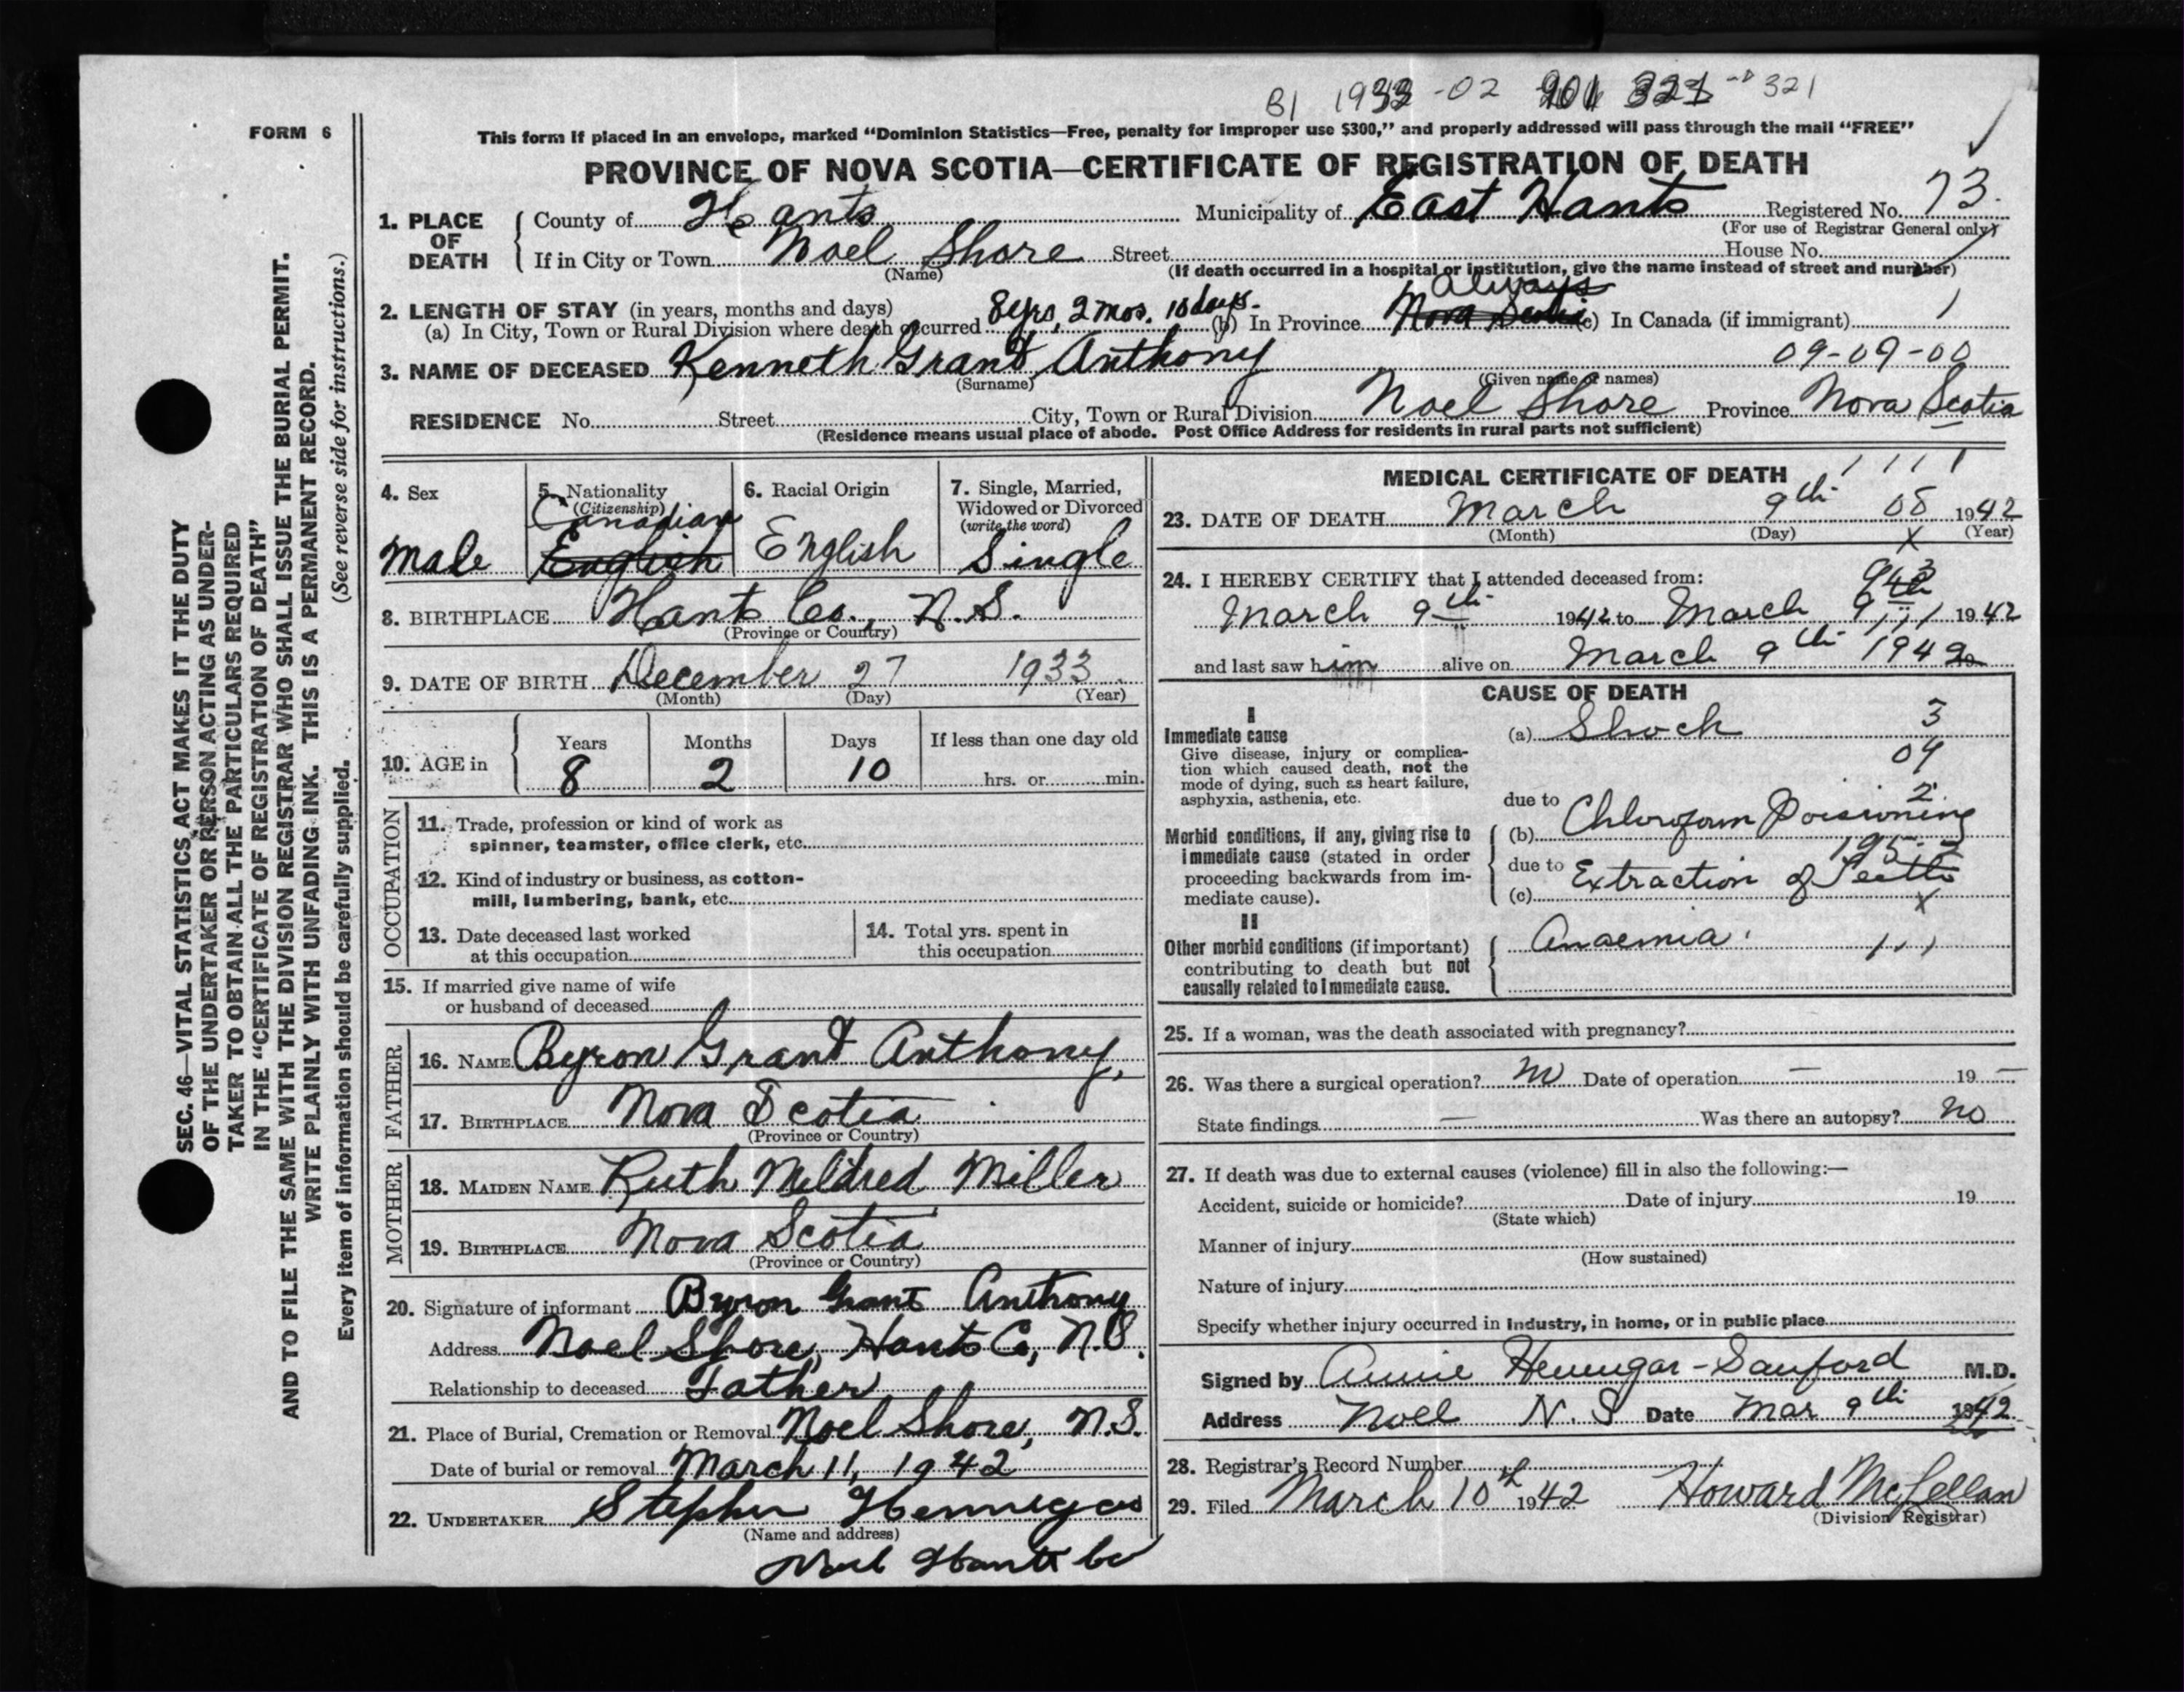 B1 1933 -02 321
FORM 6
This form if placed in an envelope, marked "Dominion Statistics—Free, penalty for improper use $300," and properly addressed will pass through the mail "FREE"
PROVINCE OF NOVA SCOTIA—CERTIFICATE OF REGISTRATION OF DEATH
1. PLACE OF DEATH County of Hants Municipality of East Hants Registered No. 73.
(For use of Registrar General only)
If in City or Town Noel Shore Street House No.
(Name) (If death occurred in a hospital or institution, give the name instead of street and number)
2. LENGTH OF STAY (in years, months and days)
(a) In City, Town or Rural Division where death occurred 8 yrs, 2 mos. 10 days. (b) In Province Always Nova Scotia (c) In Canada (if immigrant)
09-09-00
3. NAME OF DECEASED Kenneth Grant Anthony
(Surname) (Given name or names)
RESIDENCE No. Street City, Town or Rural Division Noel Shore Province Nova Scotia
(Residence means usual place of abode. Post Office Address for residents in rural parts not sufficient)
SEC. 46—VITAL STATISTICS ACT MAKES IT THE DUTY
OF THE UNDERTAKER OR PERSON ACTING AS UNDER-
TAKER TO OBTAIN ALL THE PARTICULARS REQUIRED
IN THE "CERTIFICATE OF REGISTRATION OF DEATH"
AND TO FILE THE SAME WITH THE DIVISION REGISTRAR WHO SHALL ISSUE THE BURIAL PERMIT.
WRITE PLAINLY WITH UNFADING INK. THIS IS A PERMANENT RECORD.
Every item of information should be carefully supplied. (See reverse side for instructions.)
4. Sex
Male
5. Nationality
(Citizenship)
Canadian
English
6. Racial Origin
English
7. Single, Married,
Widowed or Divorced
(write the word)
Single
8. BIRTHPLACE Hants Co., N.S.
(Province or Country)
9. DATE OF BIRTH December 27 1933
(Month) (Day) (Year)
10. AGE in Years Months Days If less than one day old
8 2 10 hrs. or min.
OCCUPATION
11. Trade, profession or kind of work as
spinner, teamster, office clerk, etc.
12. Kind of industry or business, as cotton-
mill, lumbering, bank, etc.
13. Date deceased last worked
at this occupation
14. Total yrs. spent in
this occupation
15. If married give name of wife
or husband of deceased
FATHER
16. NAME Byron Grant Anthony,
17. BIRTHPLACE Nova Scotia
(Province or Country)
MOTHER
18. MAIDEN NAME Ruth Mildred Miller
19. BIRTHPLACE Nova Scotia
(Province or Country)
20. Signature of informant Byron Grant Anthony
Address Noel Shore, Hants Co, N.S.
Relationship to deceased Father
21. Place of Burial, Cremation or Removal Noel Shore, N.S.
Date of burial or removal March 11, 1942
22. UNDERTAKER Stephen Hennigar
(Name and address)
Noel Hants Co
MEDICAL CERTIFICATE OF DEATH
23. DATE OF DEATH March 9th 08 1942
(Month) (Day) (Year)
24. I HEREBY CERTIFY that I attended deceased from:
March 9th 1942 to March 9th 1942
and last saw him alive on March 9th 1942
CAUSE OF DEATH
I
Immediate cause
Give disease, injury or complica-
tion which caused death, not the
mode of dying, such as heart failure,
asphyxia, asthenia, etc.
(a) Shock 3
09
due to
Morbid conditions, if any, giving rise to
immediate cause (stated in order
proceeding backwards from im-
mediate cause).
(b) Chloroform Poisoning
195
due to
(c) Extraction of Teeth
II
Other morbid conditions (if important)
contributing to death but not
causally related to immediate cause.
Anaemia
25. If a woman, was the death associated with pregnancy?
26. Was there a surgical operation? no Date of operation — 19 —
State findings — Was there an autopsy? no
27. If death was due to external causes (violence) fill in also the following:—
Accident, suicide or homicide? Date of injury 19
(State which)
Manner of injury
(How sustained)
Nature of injury
Specify whether injury occurred in industry, in home, or in public place
Signed by Annie Hennigar-Sanford M.D.
Address Noel N.S Date Mar 9th 1942
28. Registrar's Record Number
29. Filed March 10th 1942 Howard McLellan
(Division Registrar)